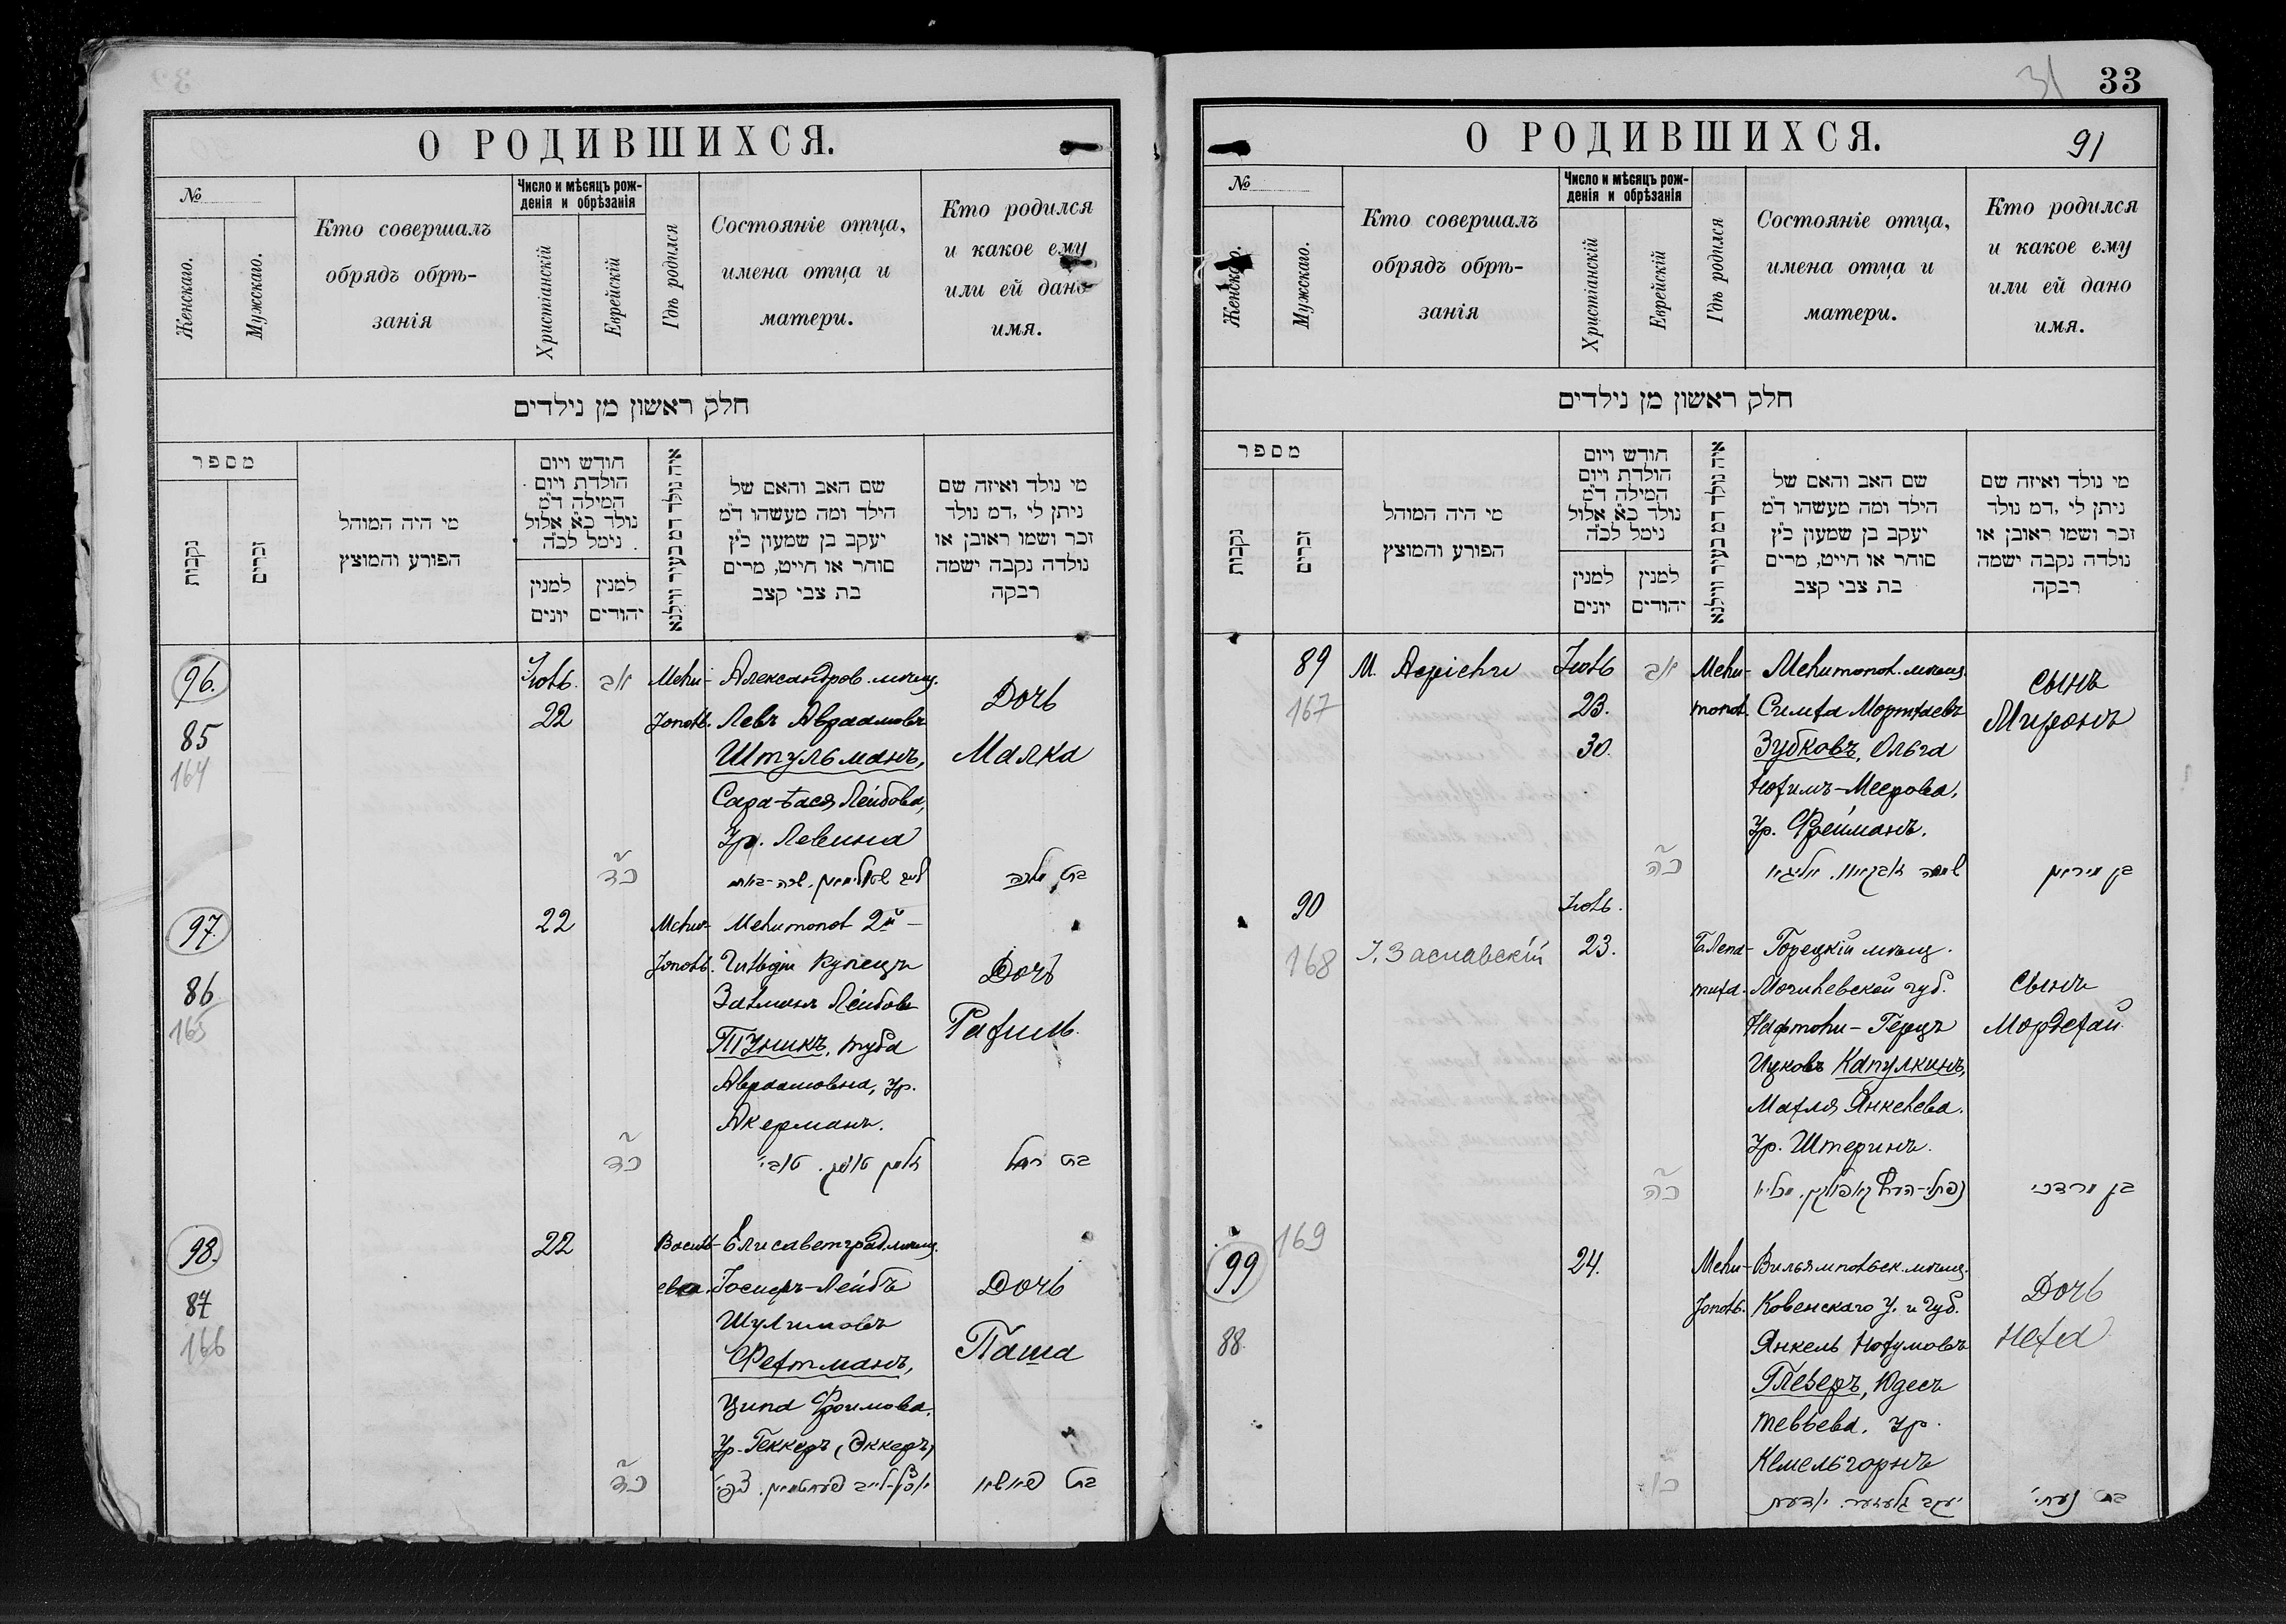 О РОДИВШИХСЯ.
№
Женскаго.
Мужскаго.
Кто совершалъ
обрядъ обрѣ-
занія
Число и мѣсяцъ рож-
денія и обрѣзанія
Христіанскій
Еврейскій
Гдѣ родился
Состояніе отца,
имена отца и
матери.
Кто родился
и какое ему
или ей дано
имя.
חלק ראשון מן נילדים
מספר
נקבות
זכרים
מי היה המוהל
הפורע והמוצץ
חודש ויום
הולדת ויום
המילה ד״מ
נולד כ״א אלול
נימל לכ״ה
למנין
יונים
למנין
יהודים
איה נולד דמ בעיר ווילנא
שם האב והאם של
הילד ומה מעשהו ד״מ
יעקב בן שמעון כ״ץ
סוחר או חייט, מרים
בת צבי קצב
מי נולד ואיזה שם
ניתן לי, דמ נולד
זכר ושמו ראובן או
נולדה נקבה ישמה
רבקה
96.
85
164
Іюль.
22
אב
כד
Мели-
тополь.
Александров. мѣщ.
Левъ Авраамовъ
Штульманъ,
Сара-Бася Лейбова,
Ур. Левина
Дочь
Малка
בת מלכה
97.
86
165
22
כד
Мели-
тополь.
Мелитопол 2й
Гильдіи купецъ
Залманъ Лейбовъ
Тушикъ, Туба
Авраамовна, ур.
Акерманъ.
Дочь
Рахиль.
בת רחל
98.
87
166
22
כד
Василь-
евка.
Елисаветград. мѣщ.
Іосифъ-Лейбъ
Шулимовъ
Фехтманъ,
Ципа Фроимова,
Ур. Геккеръ (Эккеръ)
Дочь
Паша
31
33
О РОДИВШИХСЯ.
91
№
Женскаго.
Мужскаго.
Кто совершалъ
обрядъ обрѣ-
занія
Число и мѣсяцъ рож-
денія и обрѣзанія
Христіанскій
Еврейскій
Гдѣ родился
Состояніе отца,
имена отца и
матери.
Кто родился
и какое ему
или ей дано
имя.
חלק ראשון מן נילדים
מספר
נקבות
זכרים
מי היה המוהל
הפורע והמוצץ
חודש ויום
הולדת ויום
המילה ד״מ
נולד כ״א אלול
נימל לכ״ה
למנין
יונים
למנין
יהודים
איה נולד דמ בעיר ווילנא
שם האב והאם של
הילד ומה מעשהו ד״מ
יעקב בן שמעון כ״ץ
סוחר או חייט, מרים
בת צבי קצב
מי נולד ואיזה שם
ניתן לי, דמ נולד
זכר ושמו ראובן או
נולדה נקבה ישמה
רבקה
89
167
М.
Іюль
23.
30.
אב
כה
Мели-
топол.
Мелитопол. мѣщ.
Симха Мортхаевъ
Зубковъ, Ольга
Нохимъ-Меерова,
Ур. Фрейманъ.
сынъ
Миронъ
90
168
І. Заславскій
Іюль.
23.
כה
Б. Лепа-
тиха.
Горецкій мѣщ.
Могилевской губ.
Нафтоли-Герцъ
Ицковъ Капулкинъ,
Махля Янкелева.
Ур. Штеринъ.
сынъ
Мордехай.
בן מרדכי
169
99
88
24.
Мели-
тополь.
Вильямпольск. мѣщ.
Ковенскаго у. и губ.
Янкель Нохумовъ
Глезеръ, Юдесъ
Тевьева. ур.
Кемельгорнъ
Дочь
Неха